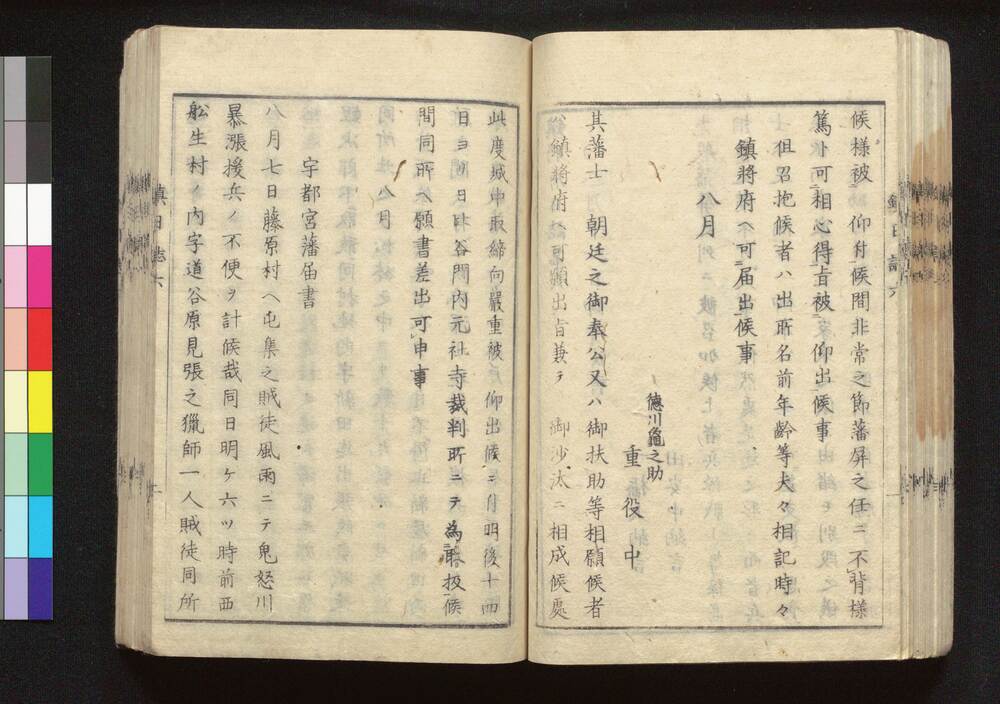 候様被 仰付候間非常之節藩屏之任ニ不背様
篤ト可相心得旨被 仰出候事
但召抱候者ハ出所名前年齢等夫々相記時々
鎮将府ヘ可届出候事
八月
徳川亀之助
重役中
其藩士 朝廷之御奉公又ハ御扶助等相願候者
鎮将府ヘ可願出旨兼テ 御沙汰ニ相成候処
此度城中取締向嚴重被 仰出候ニ付明後十四
日ヨリ日々日比谷門内元社寺裁判所ニテ為取扱候
間同所ヘ願書差出可申事
八月
宇都宮藩届書
八月七日藤原村ヘ屯集之賊徒風雨ニテ鬼怒川
暴漲援兵ノ不便ヲ計候哉同日明ケ六ツ時前西
舩生村ノ内字道谷原見張之獵師一人賊徒同所
鎮日誌六